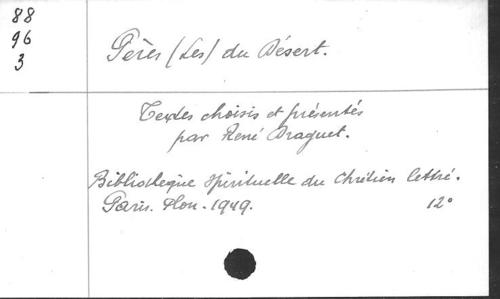 88
96
3
Pères (Les) du Désert.
Textes choisis et présentés
par René Draguet.
Bibliothèque Spirituelle du Chrétien lettré.
Paris. Plon. 1949. 12°